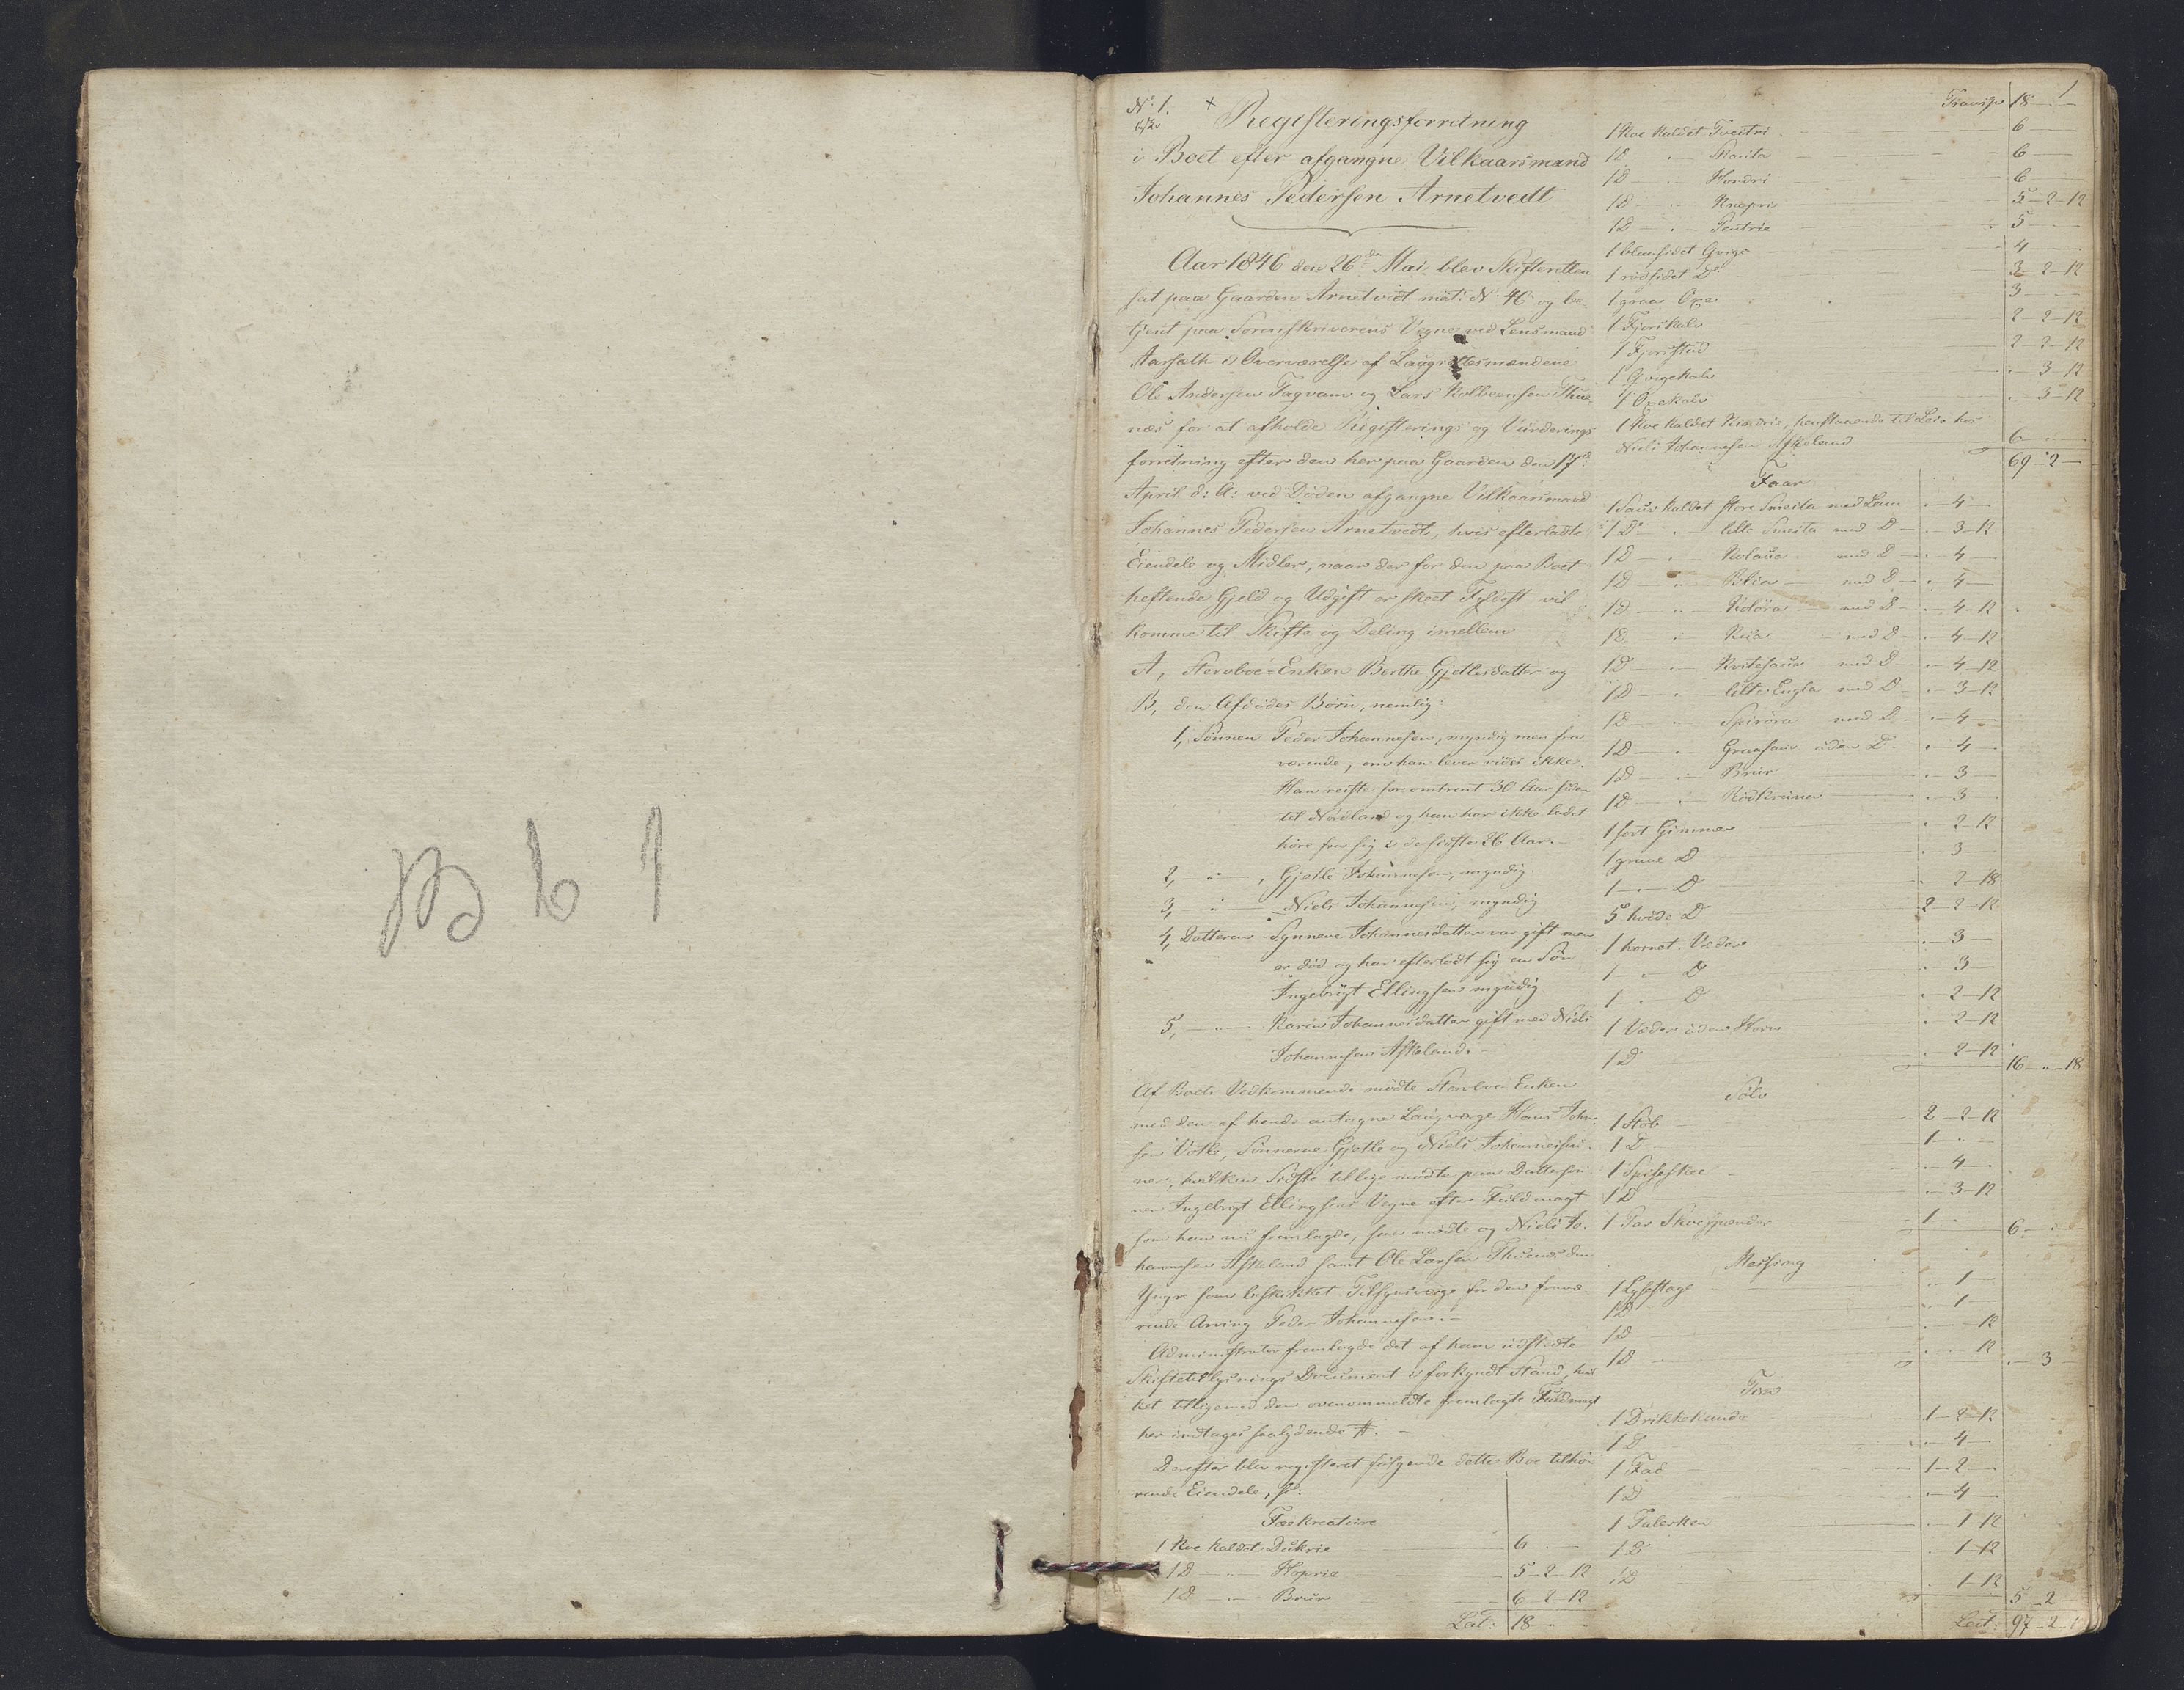 B b 1
1
No. 1.
Registeringsforretning
i Boet efter afgangne Vilkaarsmand
Johannes Pedersen Arnetvedt
Aar 1846 den 26de Mai blev Skifteretten
sat paa Gaarden Arnetvedt mat: No 46 og be-
tjent paa Sorenskriverens Vegne ved Lensmand
Aarsæth i Overværelse af Laugrettesmændene
Ole Andersen Fagvam og Lars Kolbeensen Thue
næs for at afholde Registerings og Vurderings
forretning efter den her paa Gaarden den 17de
April d: A: ved Døden afgangne Vilkaarsmand
Johannes Pedersen Arnetvedt, hvis efterladte
Eiendele og Midler, naar der for den paa Boet
heftende Gjeld og Udgift er skeet Fyldest vil
komme til Skifte og Deling imellem
A, Stervboe-Enken Berthe Gjetlesdatter og
B, den Afdødes Børn, nemlig:
1, Sønnen Peder Johannesen, myndig men fra
værende, om han lever vides ikke.
Han reiste for omtrent 30 Aar siden
til Nordland og han har ikke ladet
høre fra sig i de sidste 26 Aar.
2, — " — , Gjetle Johannesen, myndig.
3, — " — Niels Johannesen, myndig
4, Datteren Synneve Johannesdatter var gift men
er død og har efterladt sig en Søn
Ingebrigt Ellingsen myndig
5, — " — Karen Johannesdatter gift med Niels
Johannesen Askeland.
Af Boets Vedkommende mødte Stervboe Enken
med den af hende antagne Laugværge Hans Johne-
sen Votle, Sønnerne Gjetle og Niels Johannesen-
ner, hvilken Sidste tillige mødte paa Dattersøn
nen Ingebrigt Ellingsens Vegne efter Fuldmagt
som han nu fremlagde, saa mødte og Niels Jo-
hannesen Askeland samt Ole Larsen Thuenes den
Yngre som beskikket Tilsynsværge for den fravæ
rende Arving Peder Johannesen.
Administrator fremlagde det af ham udstedte
Skiftetillysnings Document i forkyndt Stand, hvil
ket tilligemed den ovenommeldte fremlagte Fuldmagt
her indtages saalydende #.
Derefter blev registeret følgende dette Boe tilhø-
rende Eiendele, s:
Fækreature
1 Koe kaldet Dukrie 6 " —
1 D — " — Hoprie 5 - 2 - 12
1 D — " — Brun 6 - 2 - 12
Lat: 18 —
Transp 18 —
1 Koe kaldet Tveitri 6 —
1 D — " — Skauta 6 —
1 D — " — Hondri 6 —
1 D — " — Knepri 5 - 2 - 12
1 D — " — Pentrie 5 —
1 blaasidet Qvige 4 —
1 rødsidet D 3 - 2 - 12
1 graa Oxe 3 —
1 Fjorskalv 2 - 2 - 12
1 Fjorstud 2 - 2 - 12
1 Qvigekalv " 3 - 12
1 Oxekalv " 3 - 12
1 Koe kaldet, henstaaende til Leie hos
Niels Johannesen Askeland 6 —
69 - 2 —
Faar
1 Sau kaldet store Smeita med Lam " - 4 —
1 D — " — litle Smeita med D " - 3 - 12
1 D — " — med D " - 4 —
1 D — " — med D " - 4 —
1 D — " — med D " - 4 - 12
1 D — " — med D " - 4 - 12
1 D — " — Kvitesaua med D " - 4 - 12
1 D — " — litle Eugla med D " - 3 - 12
1 D — " — Spirøra med D " - 4 —
1 D — " — Graasau uden D " - 4 —
1 D — " — Brun " - 3 —
1 D — " — Rødkruna " - 3 —
1 sort Gimmer " 2 - 12
1 graae D " 3 —
1 — " — D " 2 - 18
5 hvide D 2 - 2 - 12
1 hornet Væder " - 3 —
1 — " — D " - 3 —
1 — " — D " 2 - 12
1 Væder uden Horn " 2 - 12
1 D " - 2 - 12
16 - " - 18
Sølv
1 Støb 2 - 2 - 12
1 D 1 - " -
1 Spiseskee " - 4 —
1 D " - 3 - 12
1 Par Skoespænder 1 "
6 —
Messing
1 Lysestage " - 1 —
1 D " - 1 —
1 D " - " 12
1 D " - " 12
" - 3
Tin
1 Drikkekande 1 - 2 - 12
1 D " - 4 —
1 Fad 1 - 2 —
1 D " - 4 —
1 Talerken " - 1 - 12
1 D " - 1 - 12
1 D " - 1 - 12
5 - 2
Lat: 97 - 2